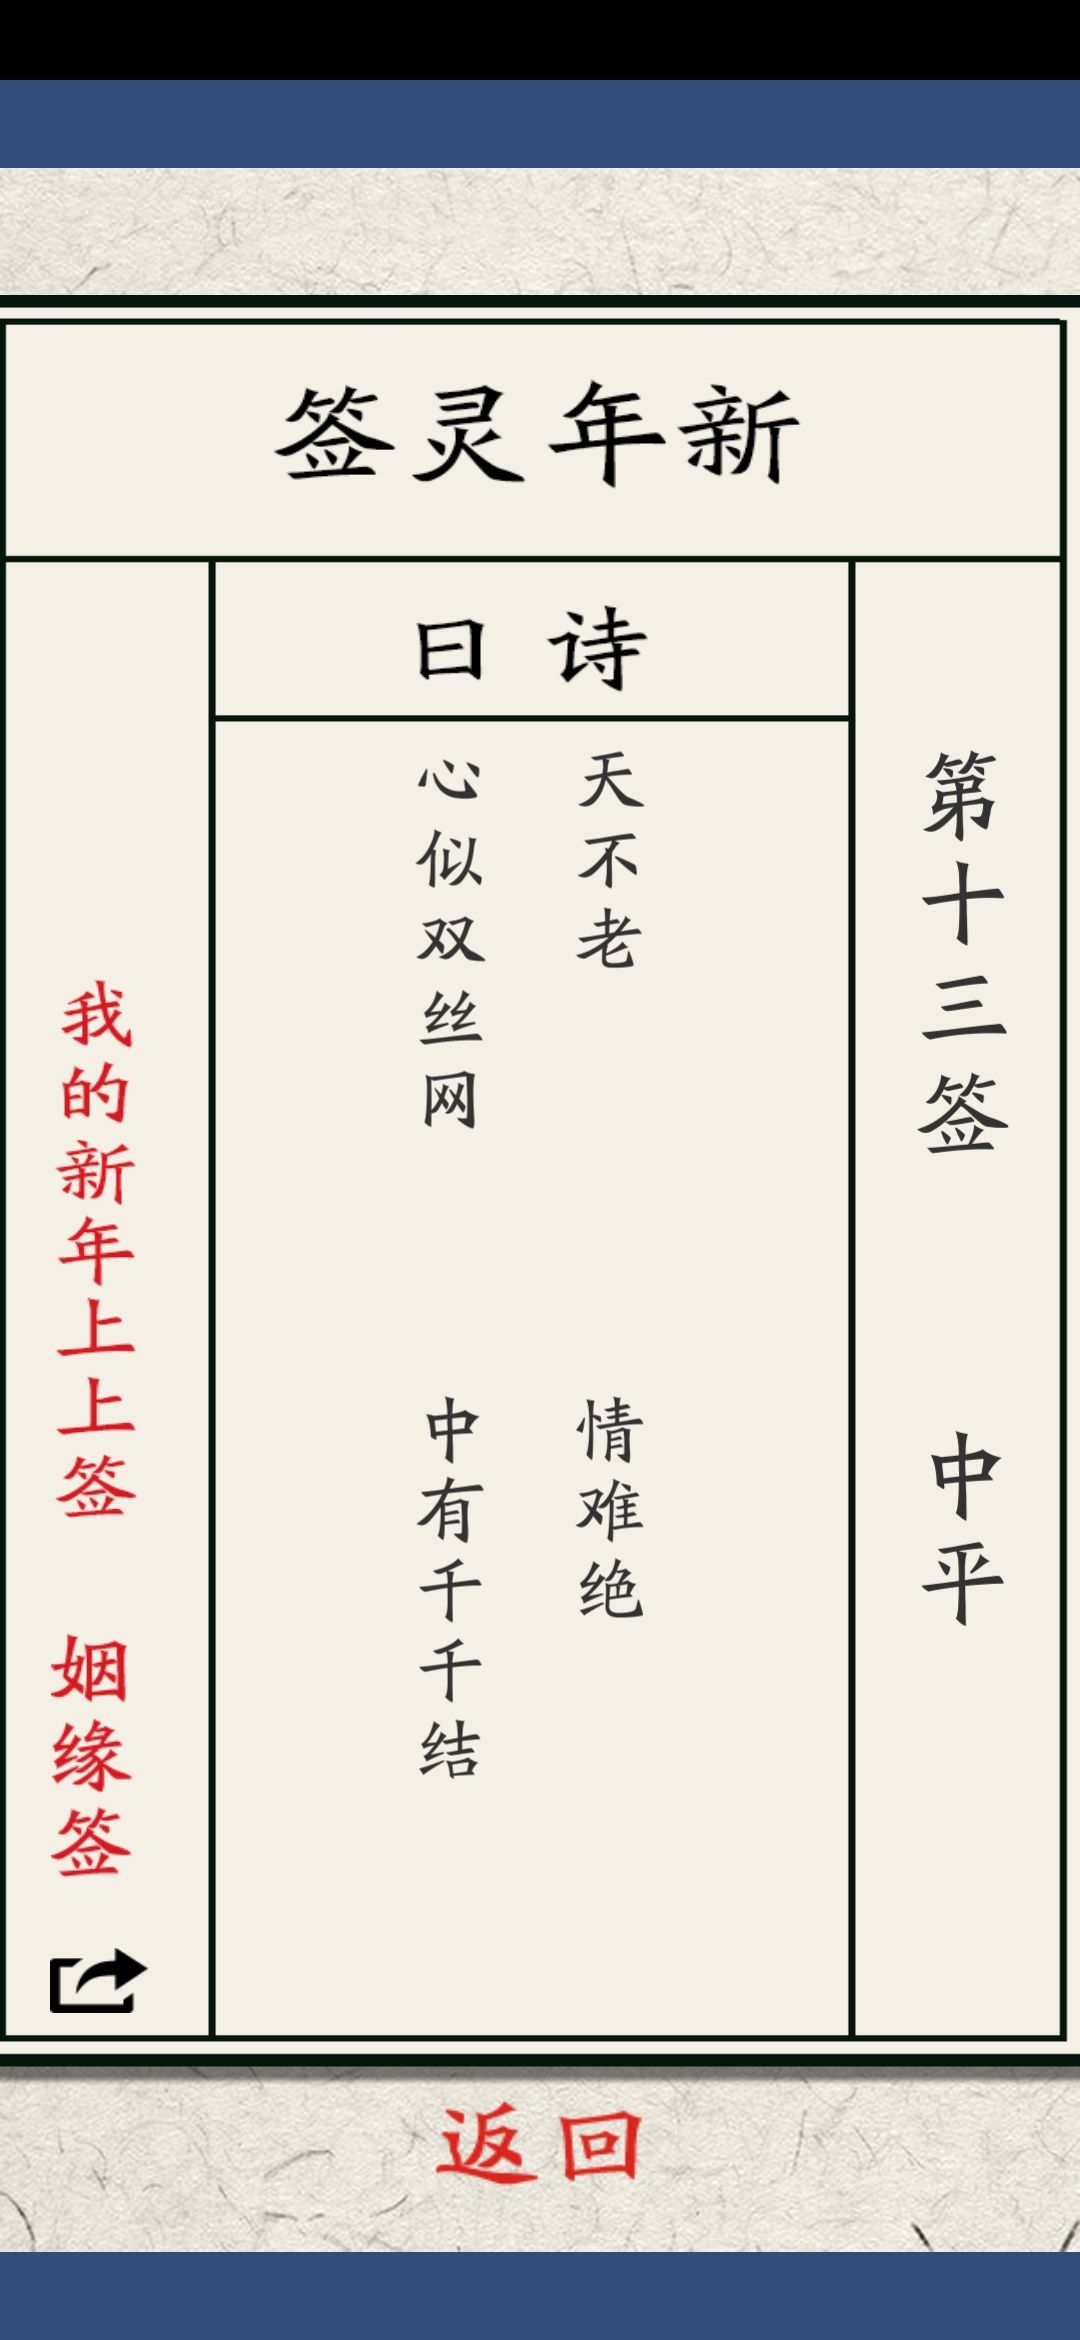 新年灵签
第十三签 中平
诗曰
天不老 情难绝
心似双丝网 中有千千结
我的新年上上签 姻缘签
返回